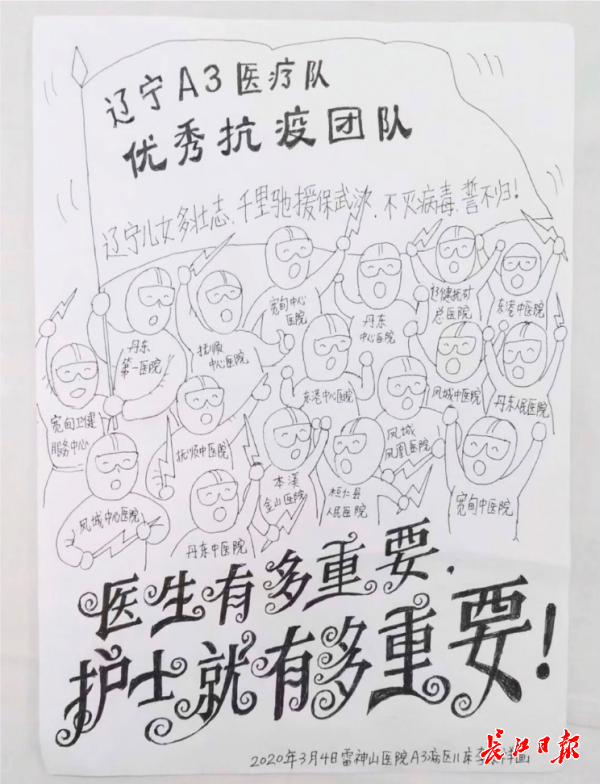 辽宁A3医疗队
优秀抗疫团队
辽宁儿女多壮志、千里驰援保武汉、不灭病毒、誓不归!
丹东
第一医院
抚顺
中心医院
宽甸中心
医院
丹东
中心医院
总医院
东港中医院
宽甸卫健
服务中心
抚顺中医院
东港中心医院
凤城中医院
丹东人民医院
凤城中心医院
丹东中医院
本溪
金山医院
桓仁县
人民医院
凤城
凤凰医院
宽甸中医院
医生有多重要,
护士就有多重要!
长江日报
2020年3月4日雷神山医院A3病区11床李 洋画